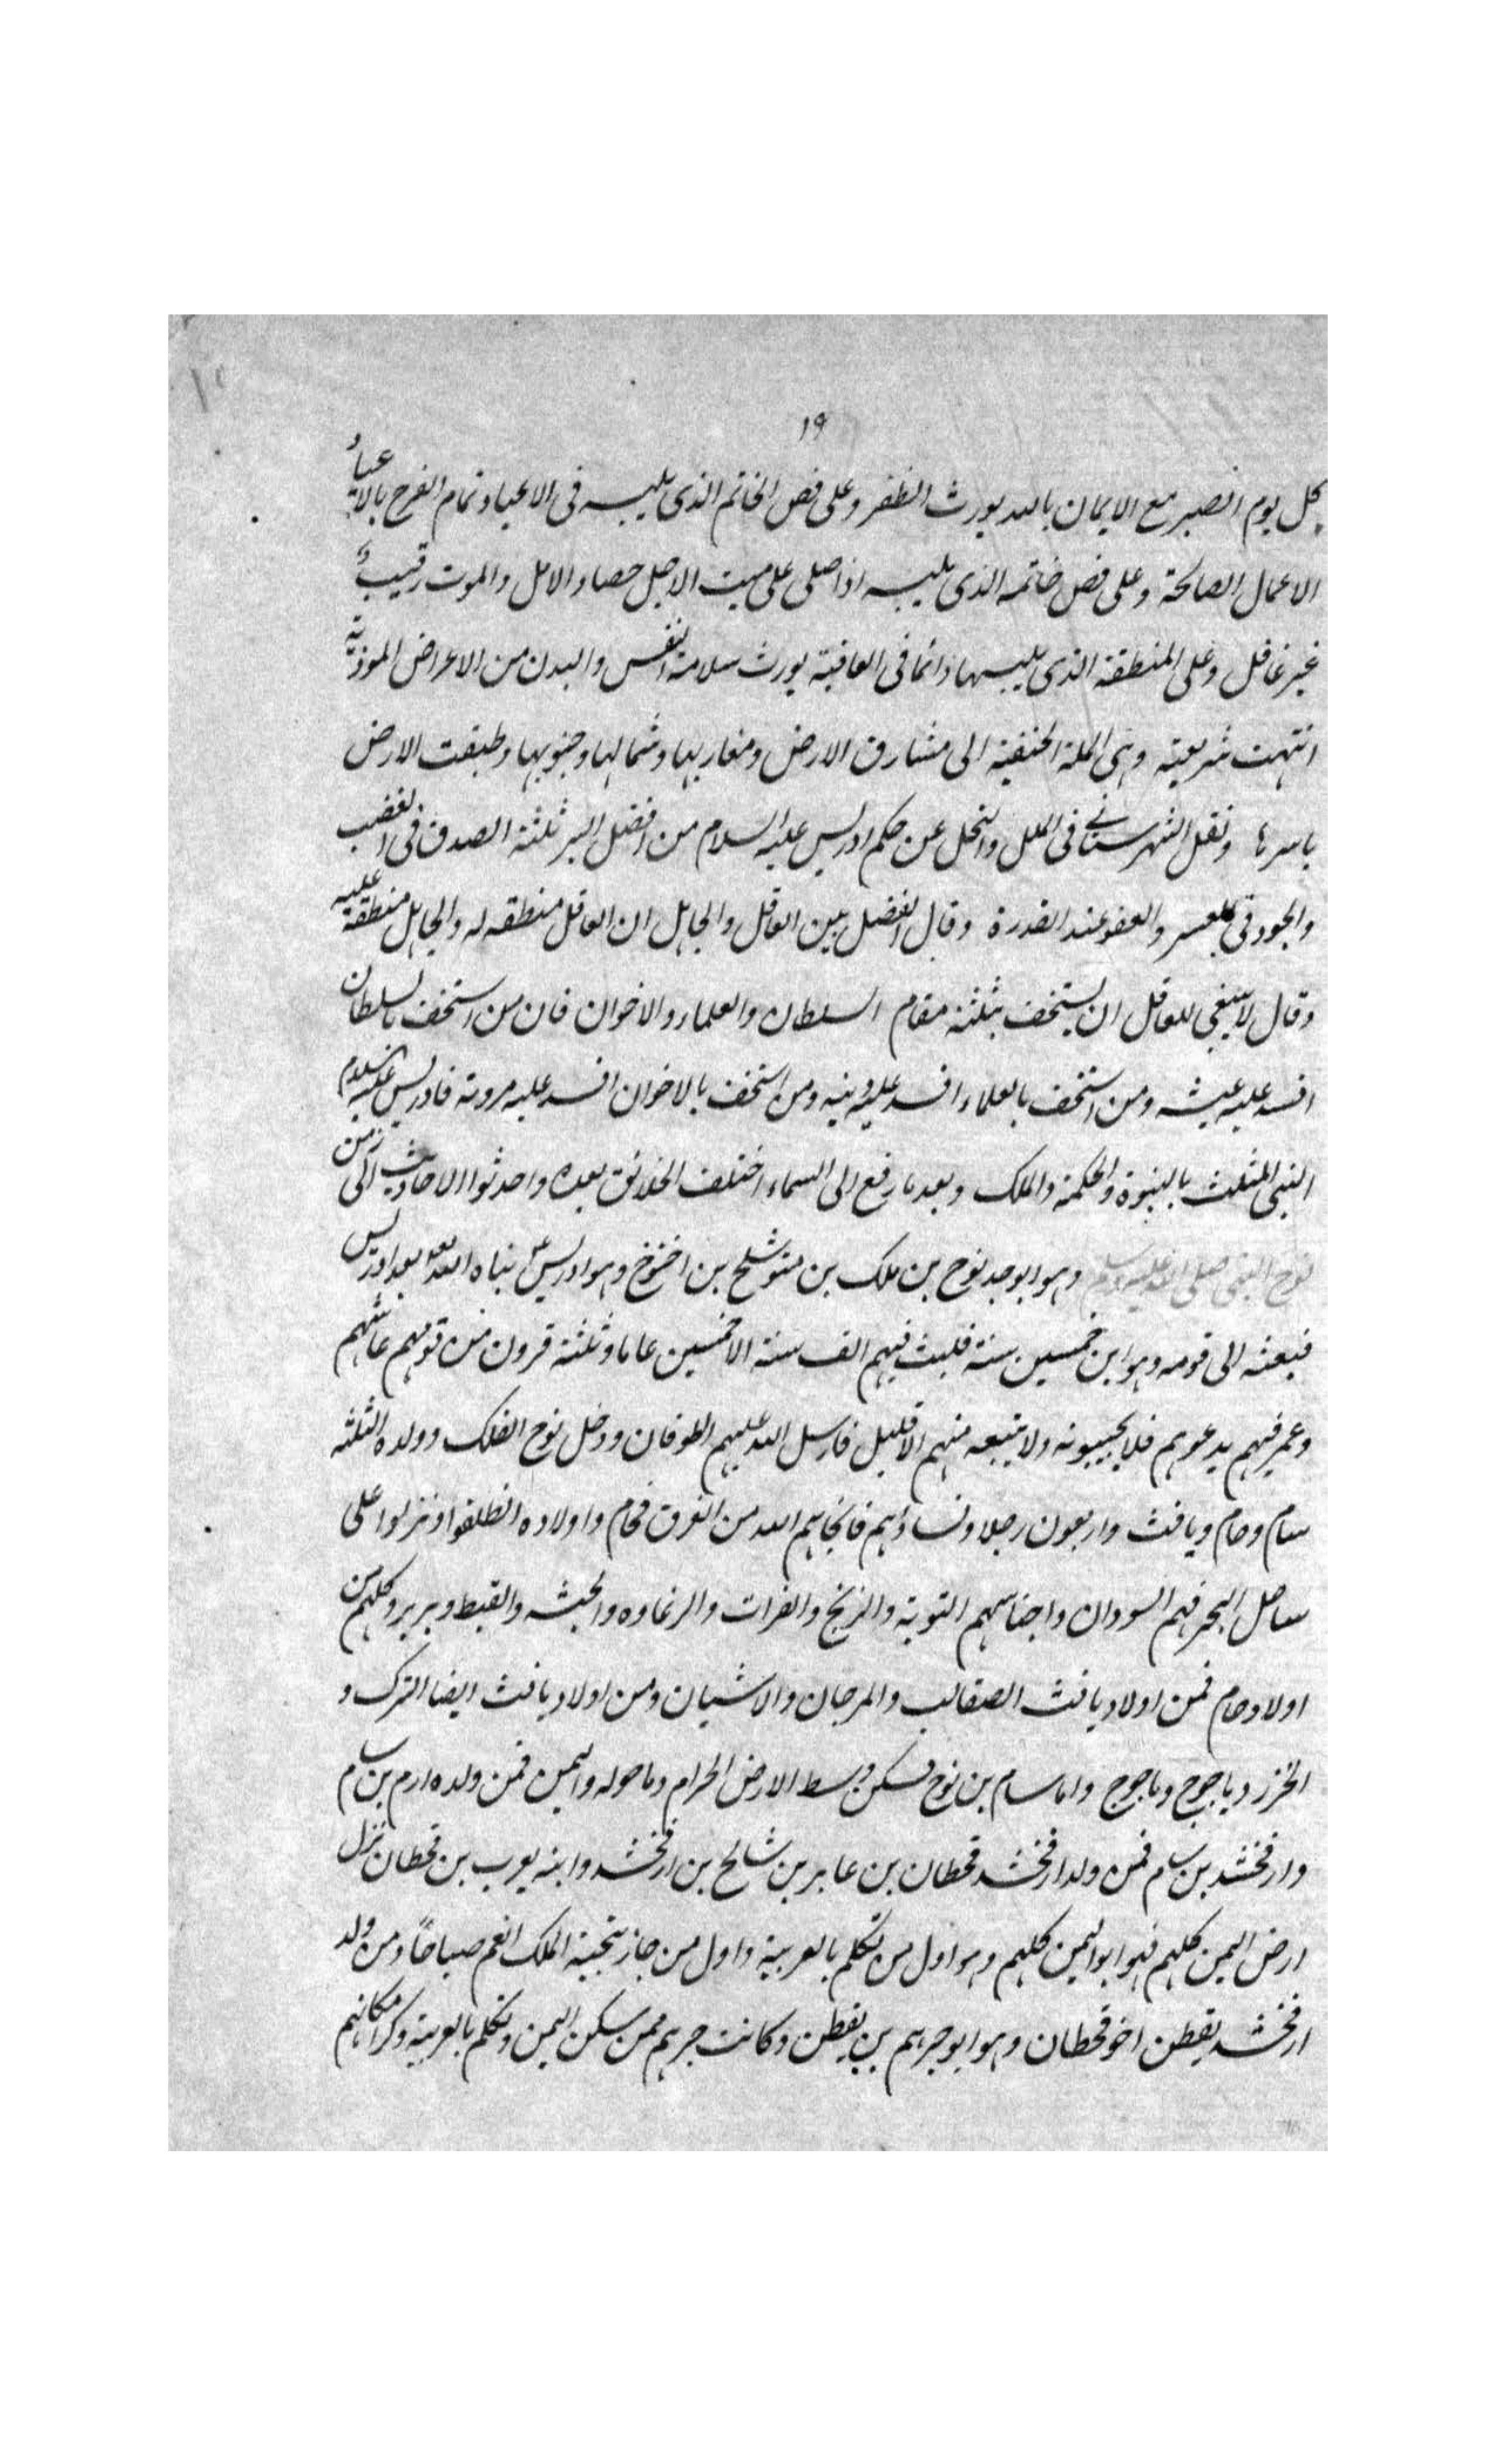 ١٩
كل يوم الصبر مع الايمان بالله يورث الظفر وعلى فص الخاتم الذى يلبسه فى الاعياد تمام الفرح بالاعياد
الاعمال الصالحة وعلى فص خاتمه الذى يلبسه اذا صلى على ميت الاجل حصاد الامل والموت رقيب
غير غافل وعلى المنطقة الذى يلبسها دائما فى العافية يورث سلامة النفس والبدن من الاعراض الموذية
انتهت شريعته وهى الملة الحنفية الى مشارق الارض ومغاربها وشمالها وجنوبها وطبقت الارض
باسرها ونقل الشهرستانى فى الملل والنحل عن حكم ادريس عليه السلام من افضل البر ثلثة الصدق فى الغضب
والجود فى العسر والعفو عند القدرة وقال الفضل بين العاقل والجاهل ان العاقل منطقه له والجاهل منطقة عليه
وقال لا ينبغى للعاقل ان يستخف بثلثة مقام السلطان والعلماء والاخوان فان من استخف بالسلطان
افسد عليه عيشه ومن استخف بالعلماء افسد عليه دينه ومن استخف بالاخوان افسد عليه مروته فادريس عليه السلام
النبى المثلث بالنبوة والحكمة والملك وبعد ما رفع الى السماء اختلف الخلائق بعده واحدثوا الاحاديث الى زمن
نوح النبى صلى الله عليه وسلم وهو ابو جد نوح بن ملك بن متوشلح بن اخنوخ وهو ادريس نباه الله بعد ادريس
فبعثه الى قومه وهو ابن خمسين سنة فلبث فيهم الف سنة الا خمسين عاما وثلثة قرون من قومهم عاشهم
وعمر فيهم يدعوهم فلا يجيبونه ولا يتبعه منهم الا قليل فارسل الله عليهم الطوفان ودخل نوح الفلك وولده الثلثه
سام وحام ويافث واربعون رجلا ونساؤهم فانجاهم الله من الغرق فحام واولاده انطلقوا ونزلوا على
ساحل البحر فهم السودان واجناسهم التوبة والزنج والفرات والزغاوه والحبشه والقبط وبربر وكلهم من
اولاد حام فمن اولاد يافث الصقالب والمرجان والاشبان ومن اولاد يافث ايضا الترك و
الخزر وياجوج وماجوج واما سام بن نوح فسكن وسط الارض الحرام وما حوله واليمن فمن ولده ارم بن سام
وارفخشد بن سام فمن ولد ارفخشد قحطان بن عابر بن شالح بن ارفخشد وابنه يعرب بن قحطان نزل
ارض اليمن كلهم فهو ابو اليمن كلهم وهو اول من تكلم بالعربية واول من جاز بتحية الملك انعم صباحًا ومن ولد
ارفخشد يقطن اخو قحطان وهو ابو جرهم بن يقطن وكانت جرهم ممن سكن اليمن وتكلم بالعربية وكرا مكانهم